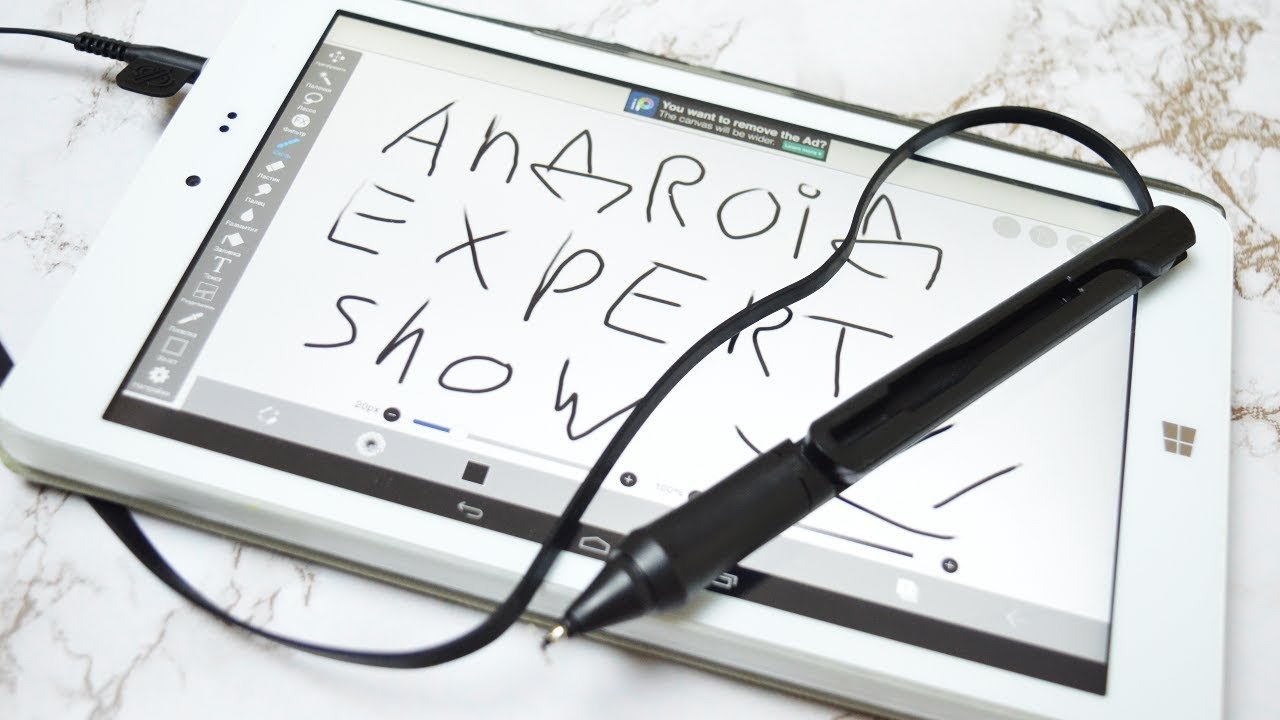 iP
You want to remove the Ad?
The canvas will be wider.
Learn more
Палочка
Лассо
Фильтр
Кисть
Ластик
Палец
Размытие
Заливка
T
Текст
Пипетка
Холст
Настройки
AnDROiD
EXPERT
Show
20px
100%